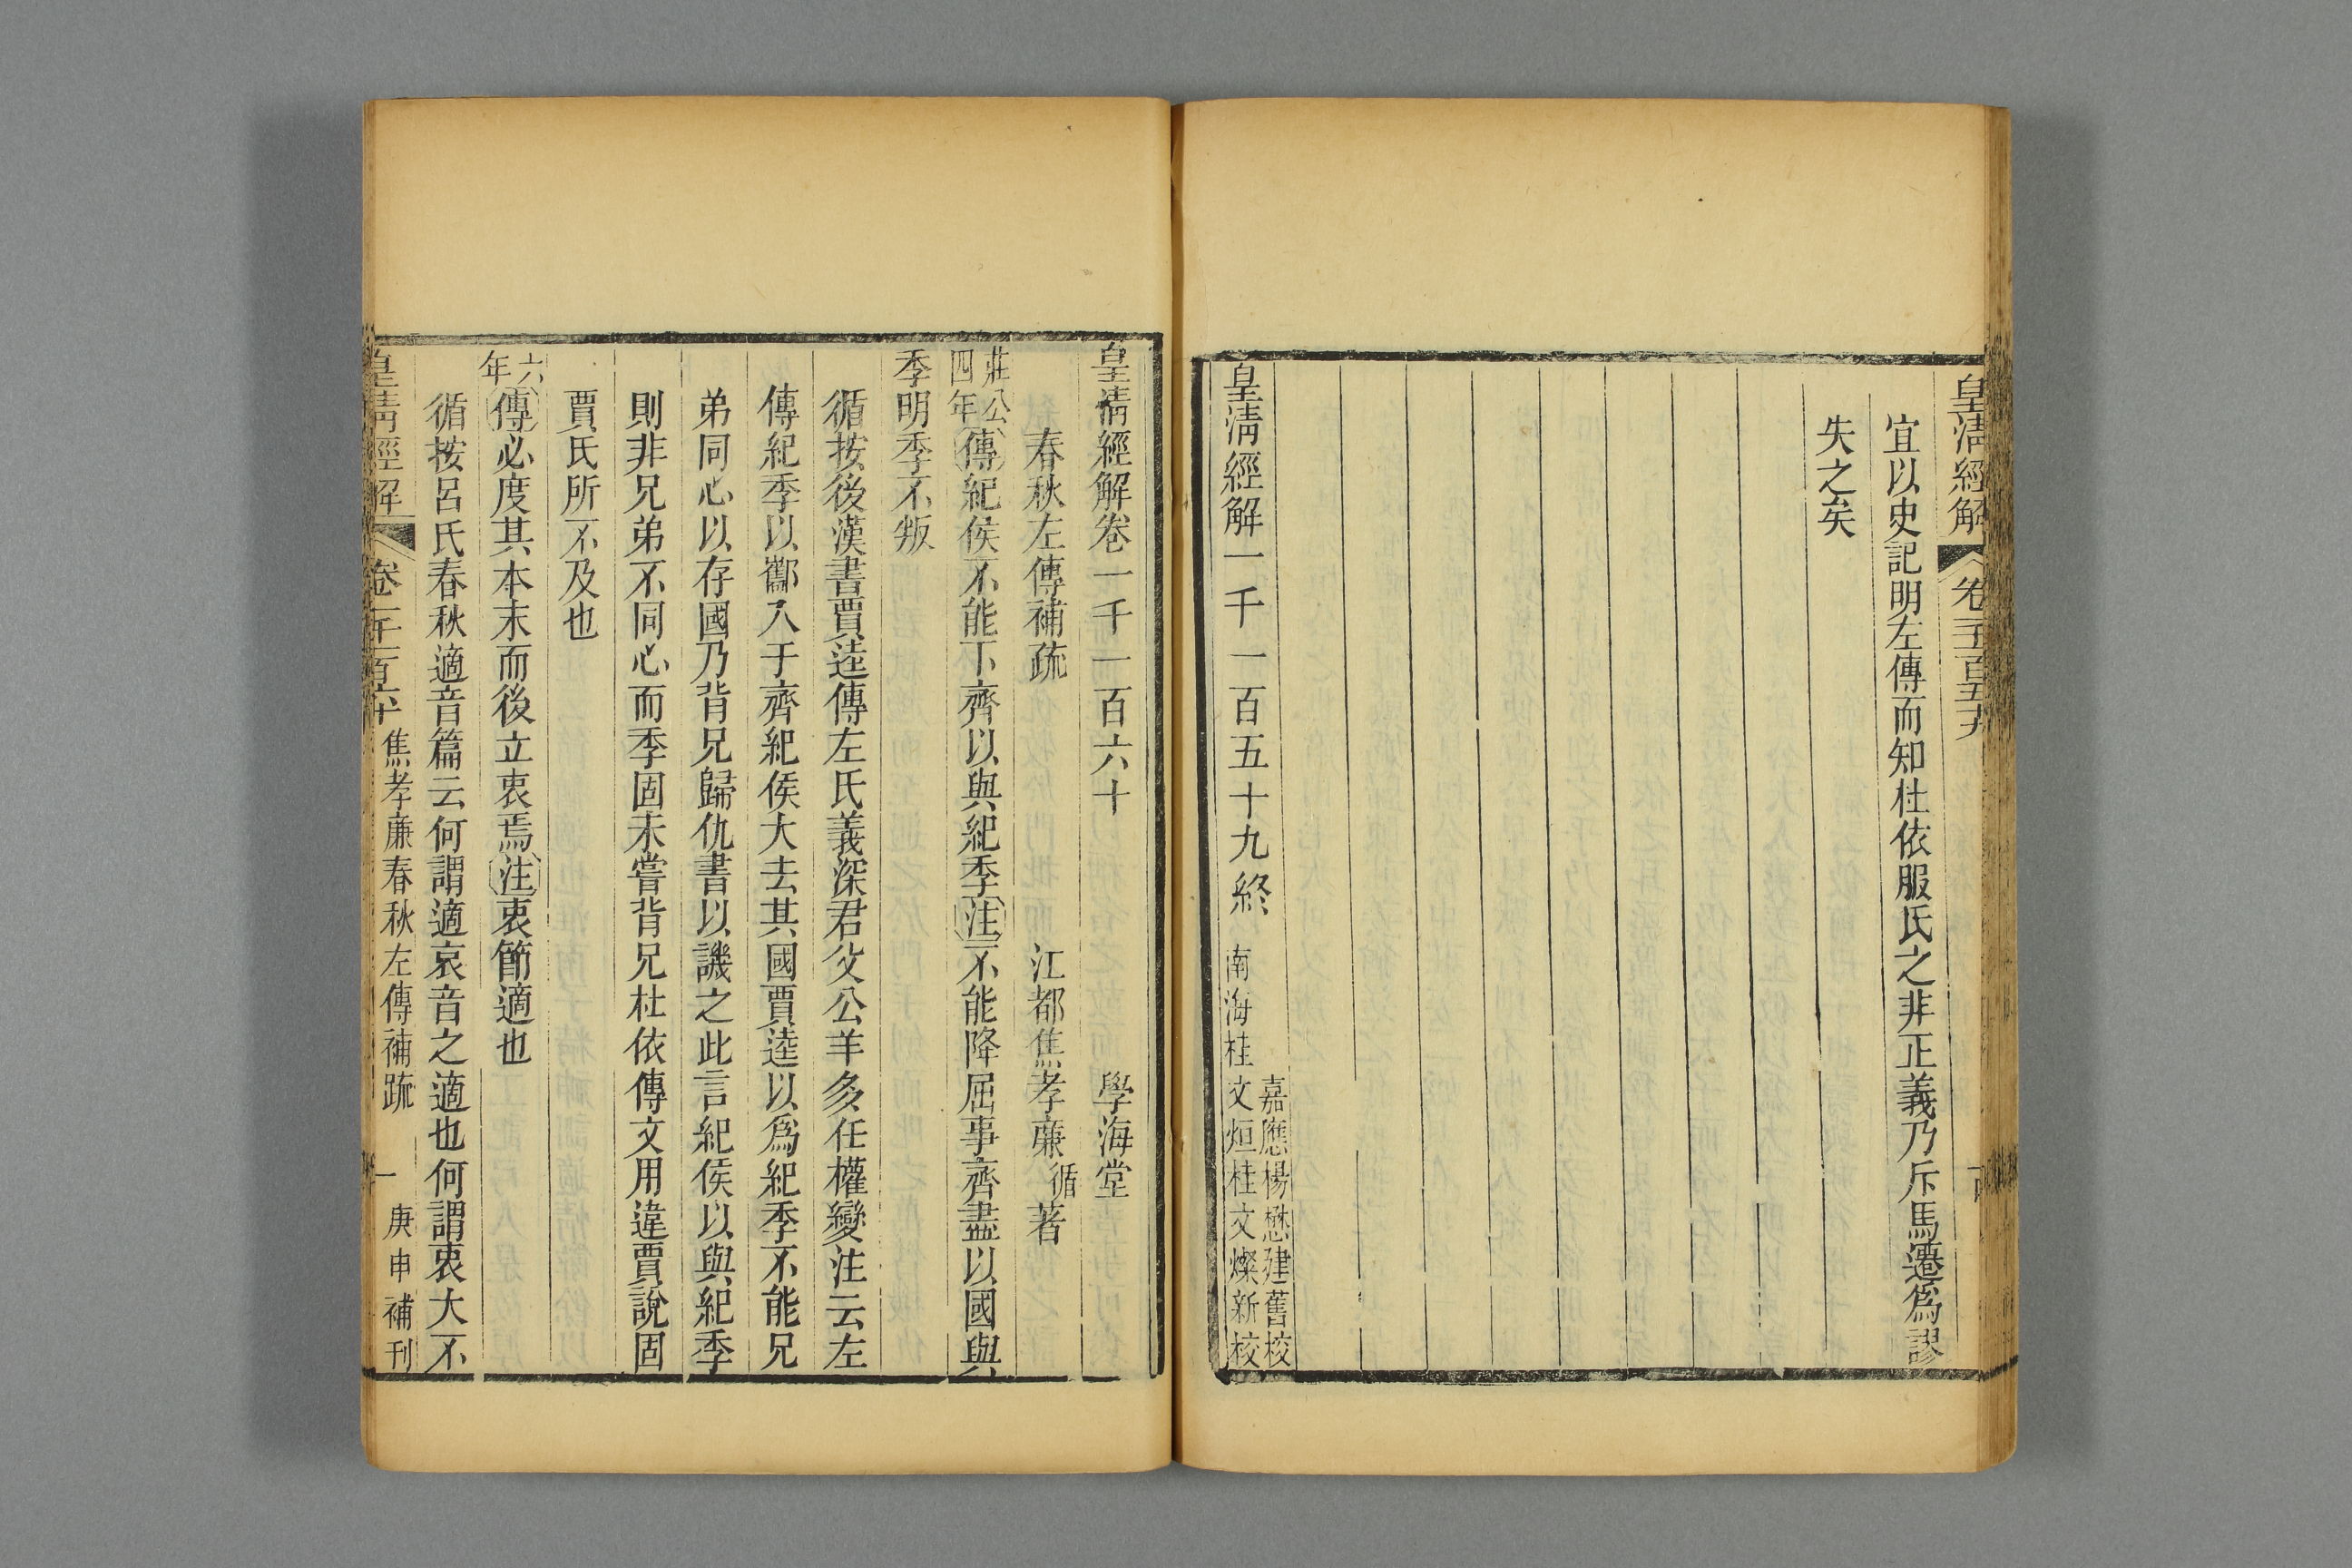 皇清經解
宜以史記明左傳而知杜依服氏之非正義乃斥馬遷爲謬
失之矣
皇清經解一千一百五十九終
嘉應楊懋建舊校
南海桂文烜桂文燦新校
皇清經解卷一千一百六十
學海堂
春秋左傳補疏
江都焦孝廉循著
莊公四年傳紀侯不能下齊以與紀季注不能降屈事齊盡以國與
季明季不叛
循按後漢書賈逵傳左氏義深君父公羊多任權變注云左
傳紀季以酅入于齊紀侯大去其國賈逵以爲紀季不能兄
弟同心以存國乃背兄歸仇書以譏之此言紀侯以與紀季
則非兄弟不同心而季固未嘗背兄杜依傳文用違賈說固
賈氏所不及也
六年傳必度其本末而後立衷焉注衷節適也
循按呂氏春秋適音篇云何謂適衷音之適也何謂衷大不
皇清經解
卷一千一百六十
焦孝廉春秋左傳補疏
一
庚申補刊